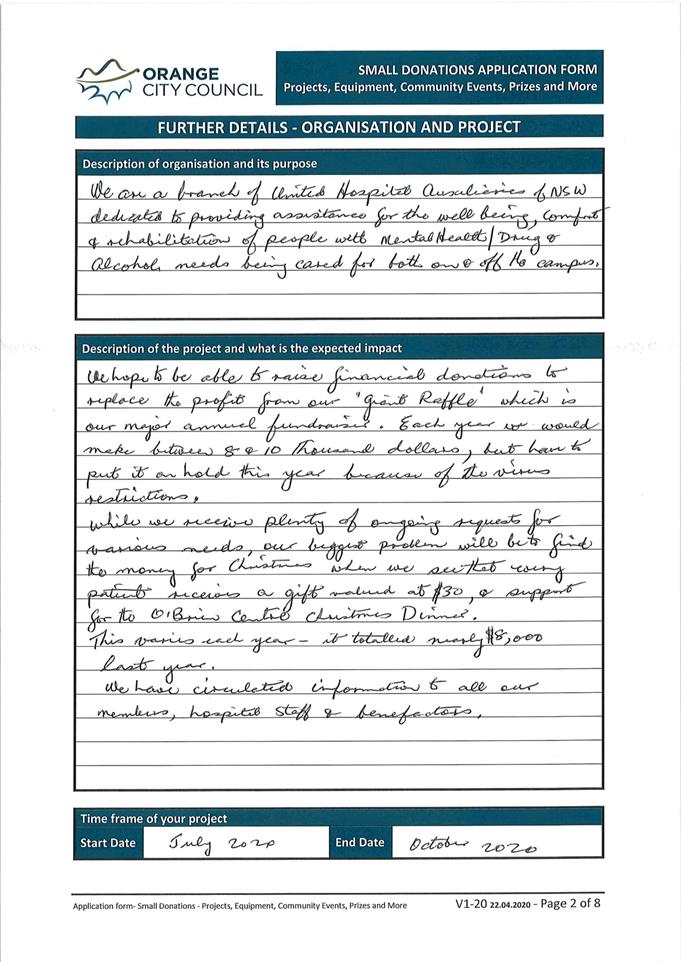 ORANGE
CITY COUNCIL
SMALL DONATIONS APPLICATION FORM
Projects, Equipment, Community Events, Prizes and More
FURTHER DETAILS - ORGANISATION AND PROJECT
Description of organisation and its purpose
We are a branch of United Hospital Auxiliaries of NSW
dedicated to providing assistance for the well being, comfort
& rehabilitation of people with Mental Health/Drug &
Alcohol needs being cared for both on & off the campus.
Description of the project and what is the expected impact
We hope to be able to raise financial donations to
replace the profit from our "Giant Raffle" which is
our major annual fundraiser. Each year we would
make between 8 & 10 Thousand dollars, but have to
put it on hold this year because of the virus
restrictions.
While we receive plenty of ongoing requests for
various needs, our biggest problem will be to find
the money for Christmas when we see that every
patient receives a gift valued at $30, & support
for the O'Brien Centre Christmas Dinner.
This varies each year - it totalled nearly $8,000
last year.
We have circulated information to all our
members, hospital staff & benefactors.
Time frame of your project
Start Date July 2020 End Date October 2020
Application form- Small Donations - Projects, Equipment, Community Events, Prizes and More V1-20 22.04.2020 - Page 2 of 8